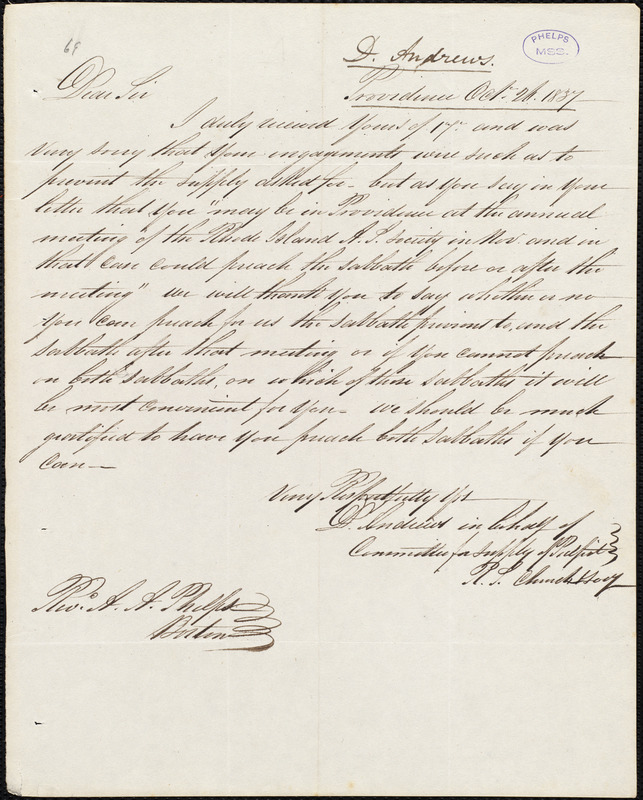 68
PHELPS
MSS.
D. Andrews.
Providence Oct. 26. 1837
Dear Sir
I duly recievd Yours of 17th and was
very sorry that your engagements were such as to
prevent the supply asked for - but as you say in your
letter that you "may be in Providence at the annual
meeting of the Rhode Island A. S. Society in Nov. and in
that case could preach the sabbath before or after the
meeting" we will thank you to say whether or no
you can preach for us the Sabbath previous to, and the
Sabbath after that meeting or if you cannot preach
on both Sabbaths, on which of those Sabbaths it will
be most convenient for you - we should be much
gratified to have you preach both Sabbaths if you
can -
Very Respectfully Yrs
D. Andrews in behalf of
Committee for supply of Pulpit
R. S. Church & Socy
Revd. A. A. Phelps
Boston